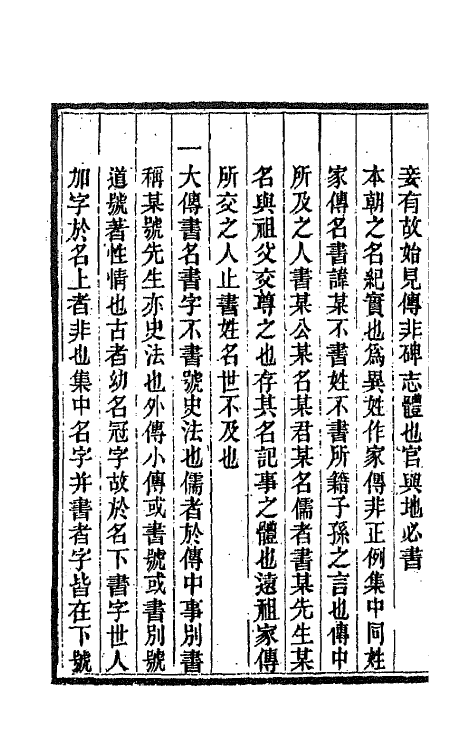 妾有故始見傳非碑志體也官與地必書
本朝之名紀實也爲異姓作家傳非正例集中同姓
家傳名書諱某不書姓不書所籍子孫之言也傳中
所及之人書某公某名某君某名儒者書某先生某
名與祖父交尊之也存其名記事之體也遠祖家傳
所交之人止書姓名世不及也
一大傳書名書字不書號史法也儒者於傳中事別書
稱某號先生亦史法也外傳小傳或書號或書別號
道號著性情也古者幼名冠字故於名下書字世人
加字於名上者非也集中名字并書者字皆在下號